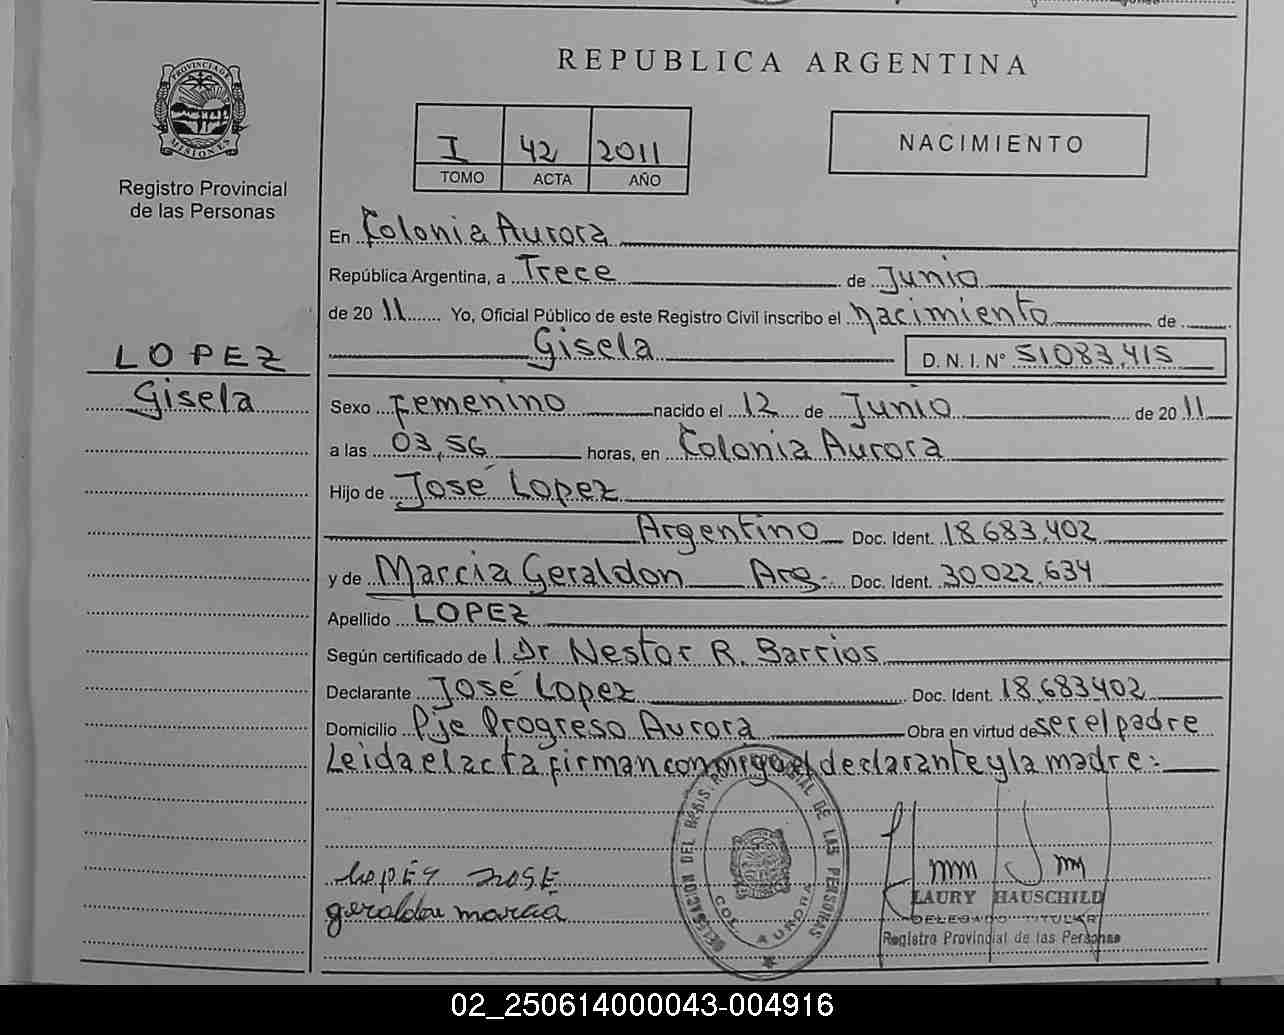 REPUBLICA ARGENTINA
PROVINCIA DE
MISIONES
Registro Provincial
de las Personas
I 42 2011
TOMO ACTA AÑO
NACIMIENTO
En Colonia Aurora
República Argentina, a Trece de Junio
de 20 11 Yo, Oficial Público de este Registro Civil inscribo el nacimiento de
LOPEZ
Gisela
Gisela D. N. I. N° 51083.415
Sexo femenino nacido el 12 de Junio de 20 11
a las 03,56 horas, en Colonia Aurora
Hijo de José Lopez
Argentino Doc. Ident. 18.683.402
y de Marcia Geraldon Arg. Doc. Ident. 30022.634
Apellido LOPEZ
Según certificado de l Dr Nestor R. Barrios
Declarante José Lopez Doc. Ident. 18.683402
Domicilio Pje Progreso Aurora Obra en virtud de ser el padre
Leida el acta firman conmigo el declarante y la madre:
DELEGACION DEL REGISTRO PROVINCIAL DE LAS PERSONAS
COL. AURORA
LOPÉZ JOSE
geraldon marcia
LAURY HAUSCHILD
DELEGADO TITULAR
Registro Provincial de las Personas
02_250614000043-004916